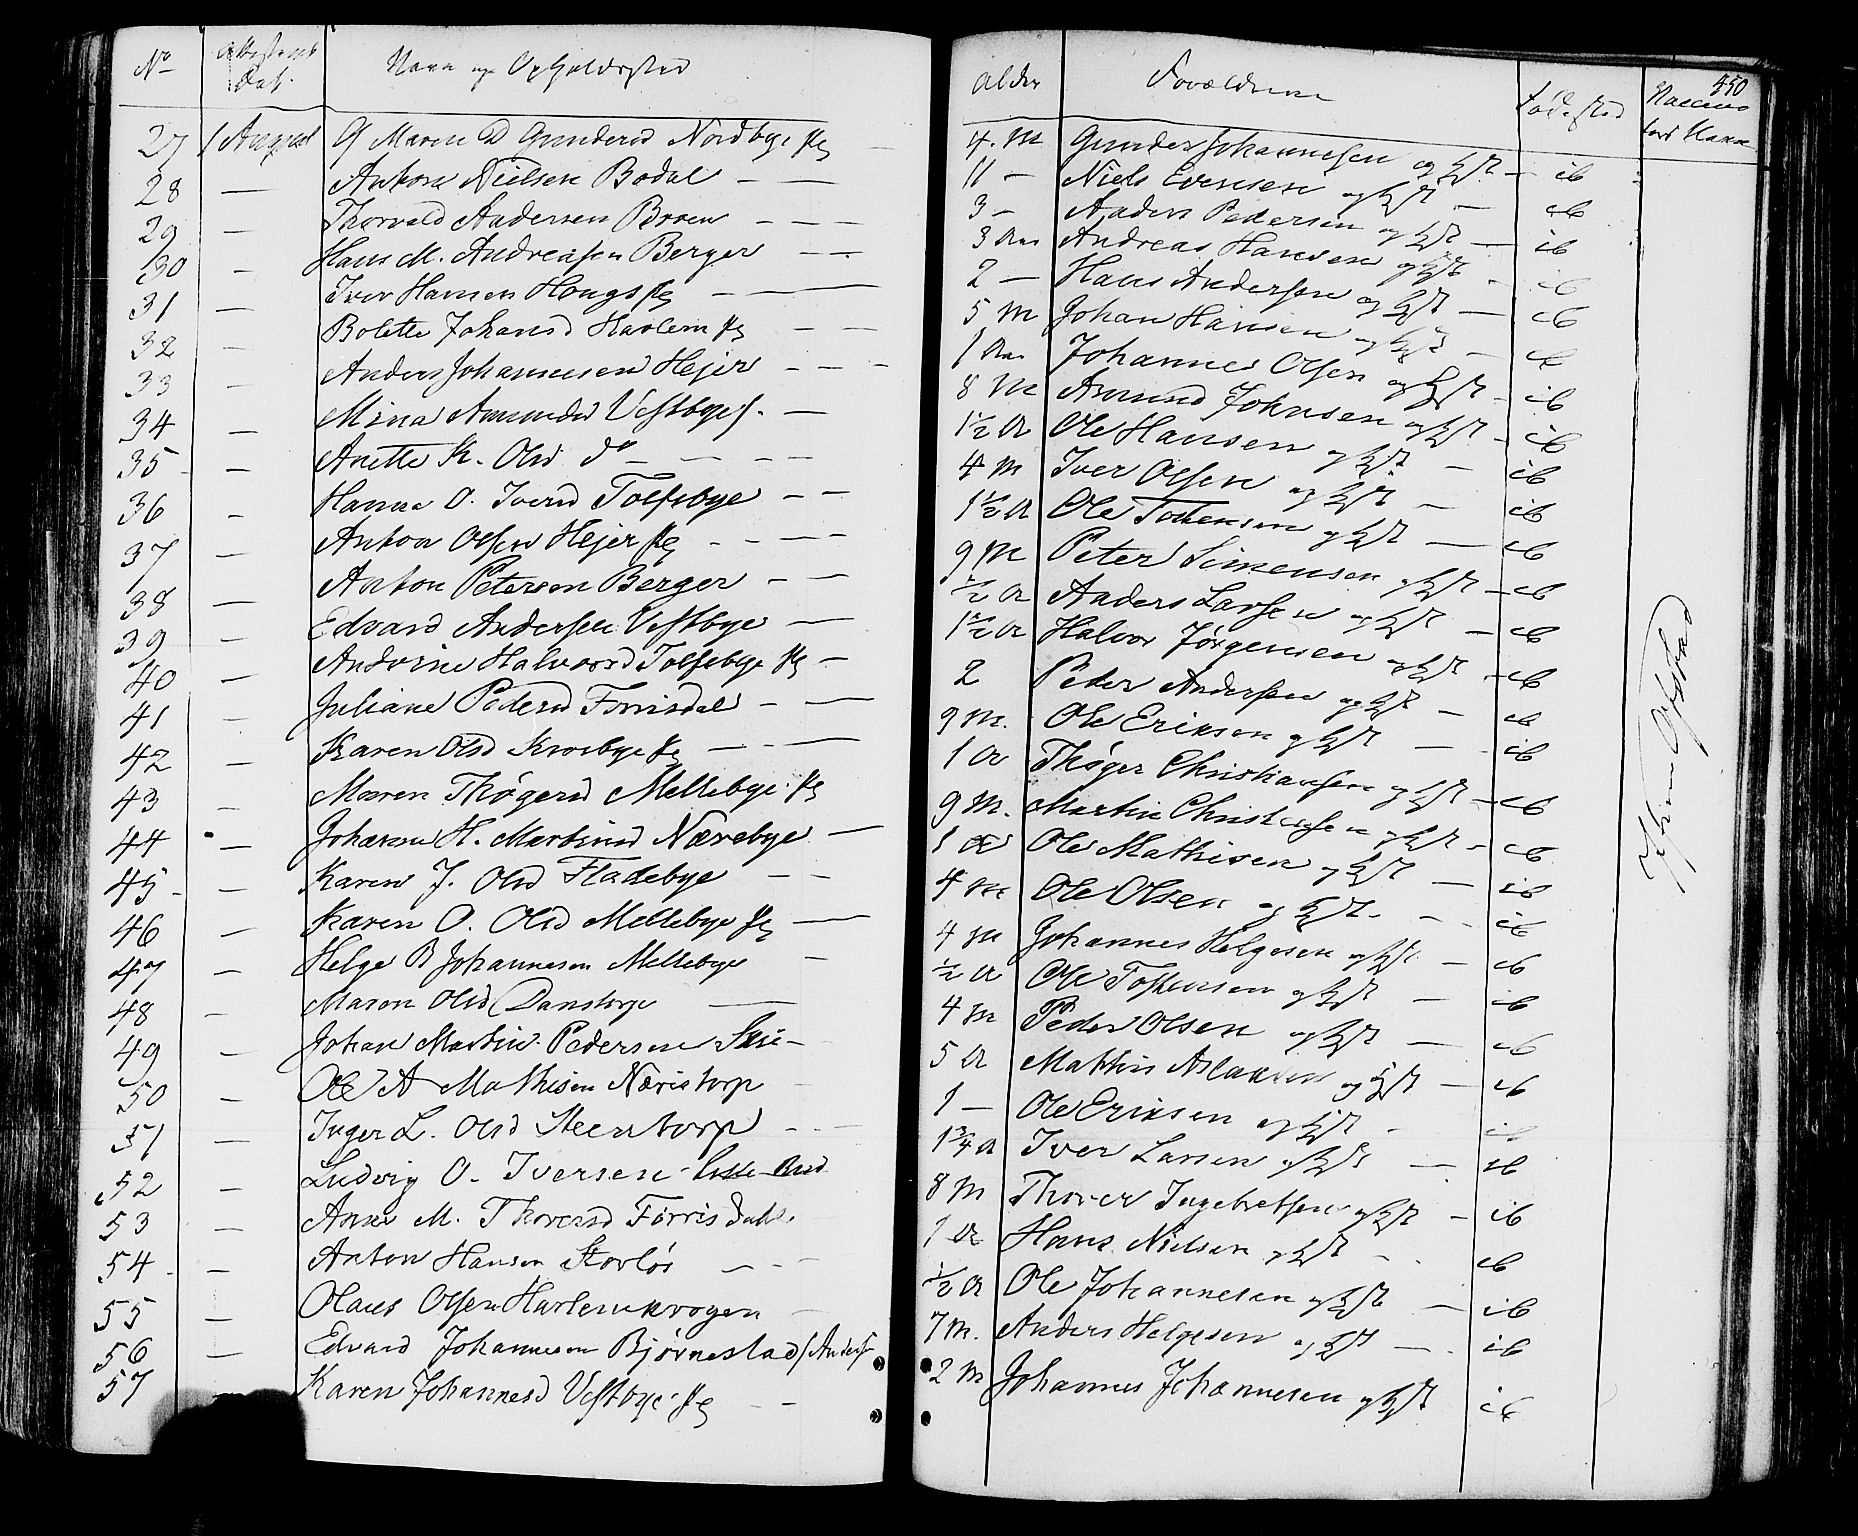 No Attestens Dat. Navn og Opholdssted Alder Forældrene Fødested 550
27 1 August G Maren D Gundersd Nordbye 4 M Gunder Johannesen og Hst ib
28 — Anton Nielsen Bodal — 11 — Niels Evensen og Hst — ib
29 — Thorvald Andersen Broen — 3 — Anders Pedersen og Hst — ib
30 — Hans M. Andreasen Berger — 3 Aar Andreas Hansen og Hst ib
31 — Iver Hansen Hougs — 2 — Hans Andersen og Hst — ib
32 — Bolette Johansd Harlem — 5 M Johan Hansen og Hst — ib
33 — Anders Johannesen Hejer — 1 Aar Johannes Olsen og Hst ib
34 — Mina Amundsd Vestbye — 8 M Amund Johnsen og Hst ib
35 — Anette K. Olsd do — 1½ A Ole Hansen og Hst — ib
36 — Hanna O. Iversd Tofsbye — 4 M Iver Olsen og Hst — ib
37 — Anton Olsen Hejer — 1½ A Ole Tostensen og Hst — ib
38 — Anton Petersen Berger — 9 M Peter Simensen og Hst — ib
39 — Edvard Andersen Vestbye — ½ A Anders Larsen og Hst — ib
40 — Andrine Halvorsd Tofsebye — 1½ A Halvor Jørgensen og Hst — ib
41 — Juliane Pedersd Forrisdal — 2 Peder Andersen og Hst — ib
42 — Karen Olsd Krosbye — 9 M. Ole Eriksen og Hst — ib
43 — Maren Thøgersd Mellebye 1 A Thøger Christiansen og Hst — ib
44 — Johanne H. Martinsd Nærebye — 9 M. Martin Christensen og Hst — ib
45 — Karen J. Olsd Fladebye — 1 A Ole Mathisen og Hst — ib
46 — Karen O. Olsd Mellebye — 4 M Ole Olsen og Hst — ib
47 — Helge B Johannesen Mellebye — 4 M Johannes Helgesen og Hst — ib
48 — Maren Olsd Danstorp — ½ A Ole Tostensen og Hst — ib
49 — Johan Martin Pedersen — 4 M Peder Olsen og Hst — ib
50 — Ole A Mathisen Næristorp 5 A Mathis Aslaksen og Hst — ib
51 — Inger L. Olsd Steentorp — 1 — Ole Eriksen og Hst — ib
52 — Ludvig O. Iversen Lille Rud 1¾ A Iver Larsen og Hst — ib
53 — Anne M. Thoresd Førrisdal 8 M Thorer Ingebretsen og Hst — ib
54 — Anton Hansen Skovløs — 1 A Hans Nielsen og Hst — ib
55 — Olaus Olsen Harlemkrogen — ½ A Ole Johannesen og Hst — ib
56 — Edvard Johannesen Bjørnestad / Anders 7 M. Anders Helgesen og Hst — ib
57 — Karen Johannesd Vestbye — 2 M Johannes Johannesen og Hst ib